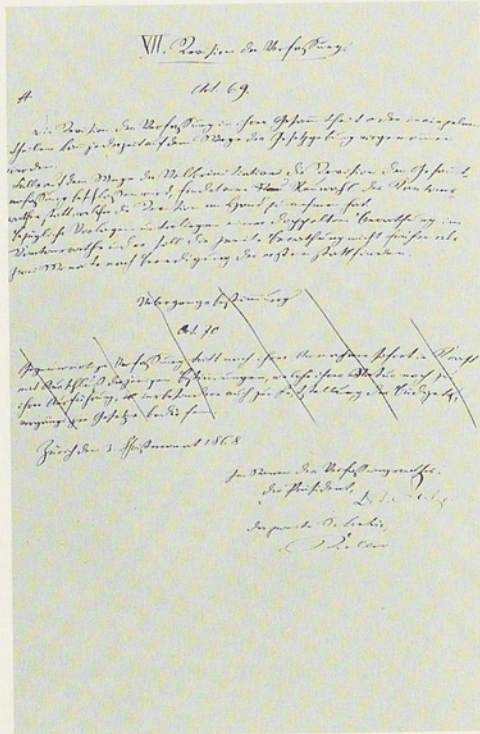 VII. Revision der Verfassung.
Art. 69.
Die Revision der Verfassung in ihrer Gesammtheit oder in einzelnen
Theilen kann jederzeit auf dem Wege der Gesetzgebung vorgenommen
werden.
Falls auf dem Wege der Volksinitiative die Revision der Gesammt-
verfassung beschlossen wird, findet eine Neuwahl des Kantons-
rathes statt, welche die Revision an Hand zu nehmen hat.
Bezügliche Vorlagen unterliegen einer doppelten Berathung im
Kantonsrathe und es soll die zweite Berathung nicht früher als
zwei Monate nach Beendigung der ersten stattfinden.
Uebergangsbestimmung
Art. 70
Gegenwärtige Verfassung tritt nach ihrer Annahme sofort in Kraft
mit Ausschluß derjenigen Bestimmungen, welche
ihrer Ausführung,
Gesetze bedürfen
Zürich den 3. 1868
Im Namen des Verfassungsrathes:
Der Präsident,
Der zweite Sekretär,
Keller